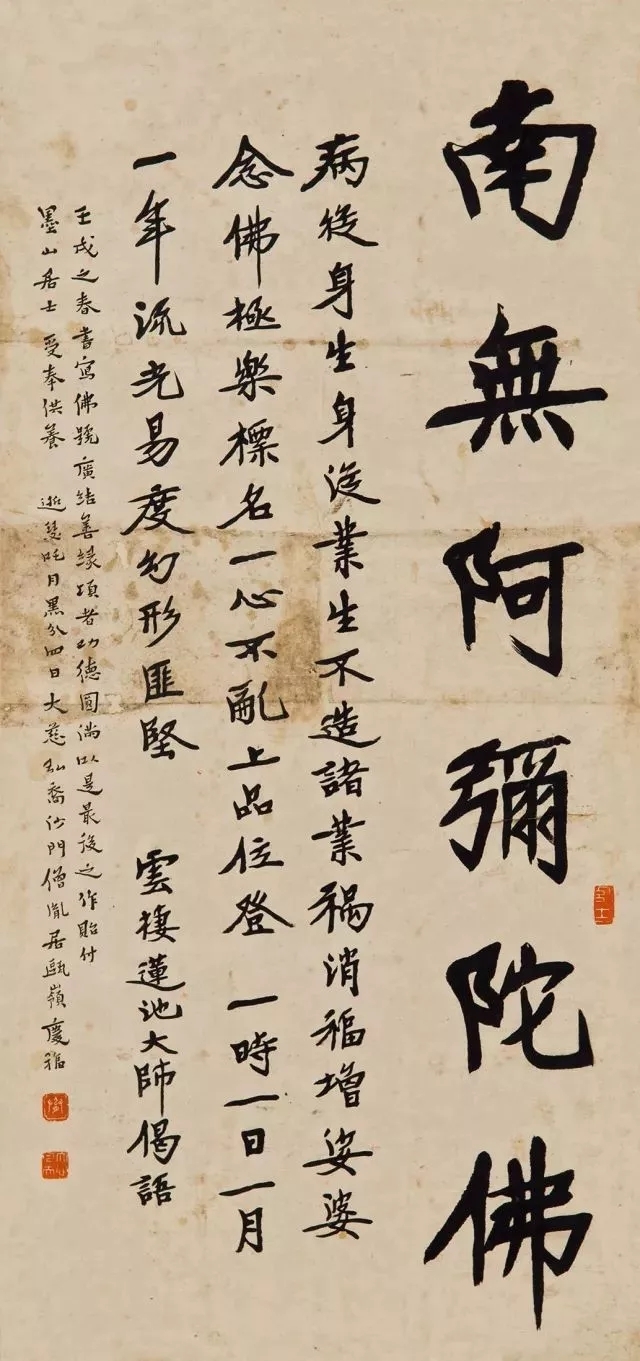 南無阿彌陀佛
病從身生身從業生不造諸業禍消福增娑婆
念佛極樂標名一心不亂上品位登 一時一日一月
一年流光易度幻形匪堅 雲棲蓮池大師偈語
壬戌之春書寫佛號廣結善緣項者功德圓滿以是最後之作貽付
墨山居士 受奉供養 逝瑟吒月黑分四日大慈弘裔沙門僧胤居甌嶺慶福